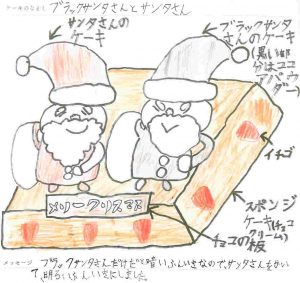 ケーキのなまえ ブラックサンタさんとサンタさん
サンタさんの
ケーキ
ブラックサンタ
さんのケーキ
(黒い部
分はココ
アパウ
ダー)
イチゴ
スポンジ
ケーキ(チョコ
クリーム)
チョコの板
メリークリスマス
メッセージ ブラックサンタさんだけだと暗いふんいきなので、サンタさんをかい
て明るいふんいきにしました。